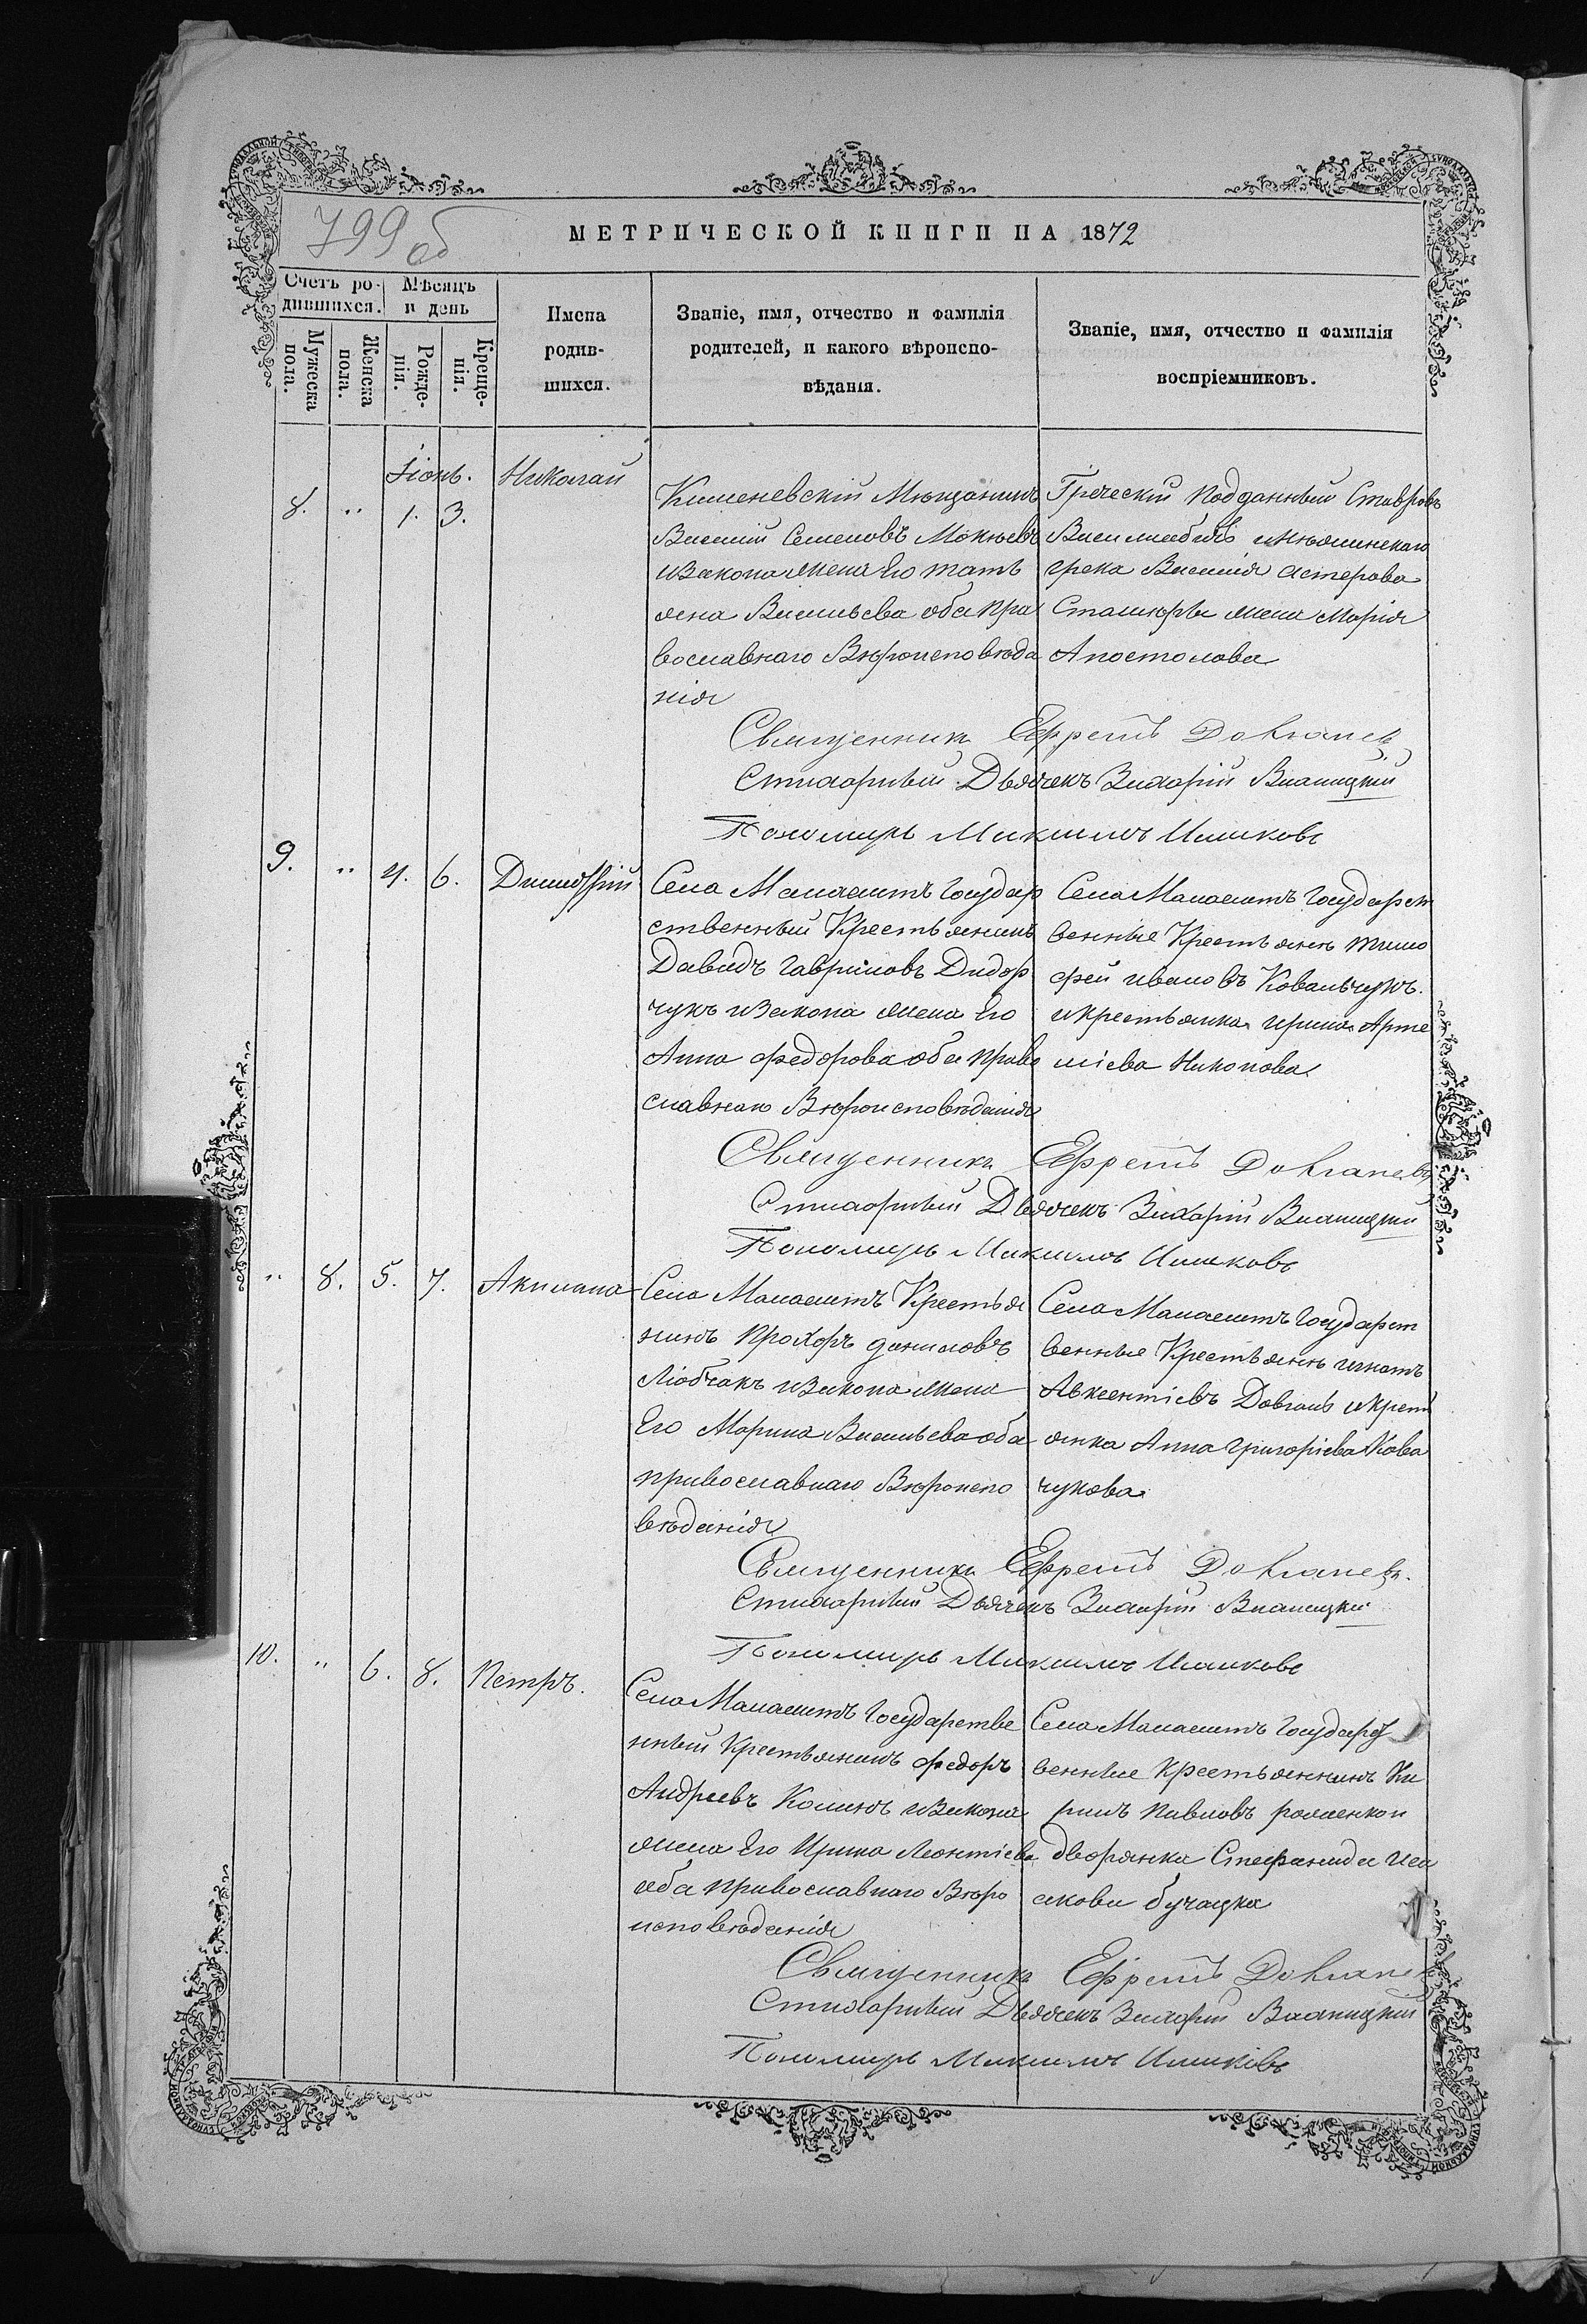 799 об
МЕТРИЧЕСКОЙ КНИГИ НА 1872
Счетъ ро-
дившихся.
Мѣсяцъ
и день
Мужеска
пола.
Женска
пола.
Рожде-
нія.
Креще-
нія.
Имена
родив-
шихся.
Званіе, имя, отчество и фамилія
родителей, и какого вѣроиспо-
вѣданія.
Званіе, имя, отчество и фамилія
воспріемниковъ.
Іюнь.
8. " 1. 3.
Николай
Кишеневскій Мѣщанинъ
Василій Семеновъ Мокневъ
изакона жена Его татъ
яна Васильева оба пра
вославнаго Вѣроисповѣда
нія
Греческій подданный Ставровъ
грека Василія Астерова
жена Марія
Апостолова
Священникъ Ефремъ
Стихарный Дьячекъ Захарій
Пономарь Михаилъ
9. " 4. 6.
Димитрій
Села Маласштъ Государ
ственный Крестьянинъ
Давидъ Гавриловъ Дидор
чукъ изакона жена Его
Анна федорова оба право
славнаго Вѣроисповѣданія
Села Маласштъ Государст
венные Крестьянъ тимо
фей ивановъ Ковальчукъ.
икрестьянка ирина Арте
міева Никонова
Священникъ Ефремъ
Стихарный Дьячекъ Захарій
Пономарь Михаилъ
" 8. 5. 7.
Акилина
Села Маласштъ Крестья
нинъ прохоръ даниловъ
Любчакъ изакона жена
Его Марина Васильева оба
православнаго Вѣроиспо
вѣданія
Села Маласштъ Государст
венные Крестьянъ игнатъ
Авксентіевъ Довгань икрест
янка Анна григоріева Кова
чукова
Священникъ Ефремъ
Стихарный Дьячекъ Захарій
Пономарь Михаилъ
10. " 6. 8.
Петръ.
Села Маласштъ Государстве
нный Крестьянинъ федоръ
Андреевъ изакона
жена Его Ирина Леонтіева
оба православнаго Вѣро
исповѣданія
Села Маласштъ Государст
венные Крестьянинъ Ки
рилъ павловъ
дворянка Стефанида Иса
акова бучацка
Священникъ Ефремъ
Стихарный Дьячекъ Захарій
Пономарь Михаилъ